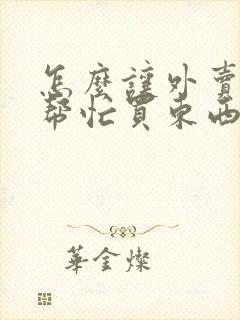 怎麼讓外賣
幫忙買東西
華金燦